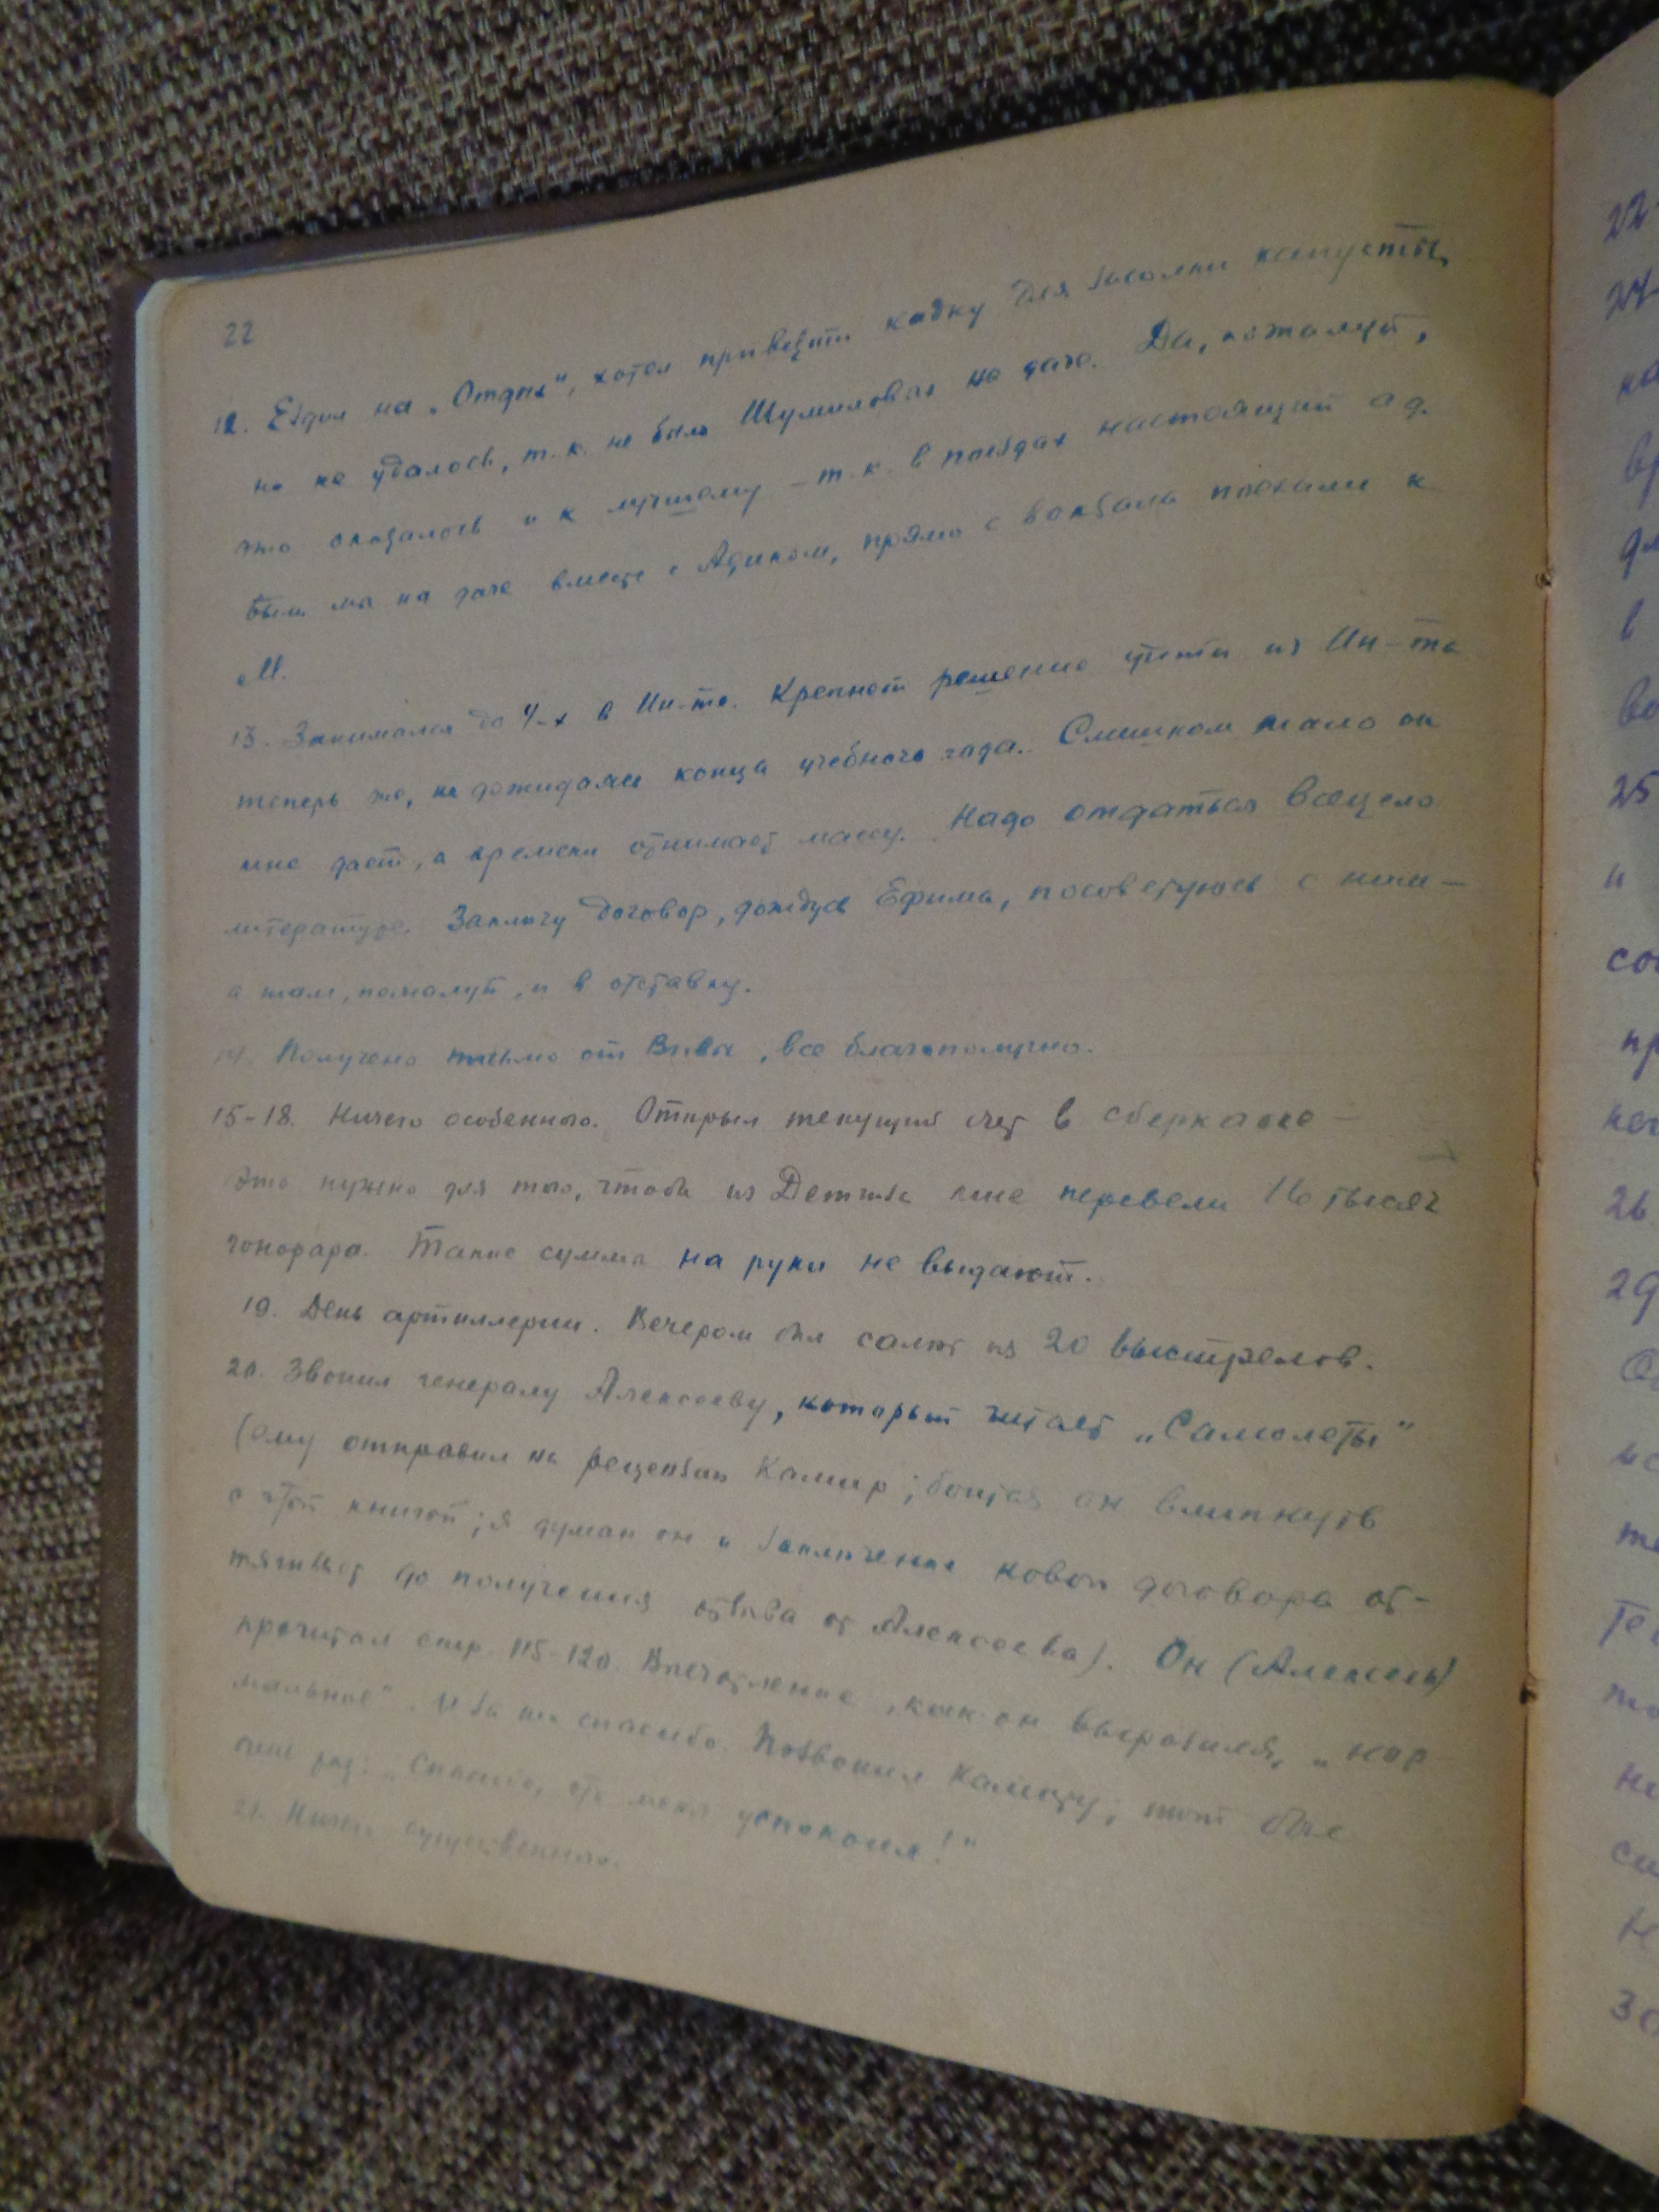 22
12. Ездил на „Отдых", хотел привезти кадку для засолки капусты,
но не удалось, т.к. не было Шумиловых на даче. Да, пожалуй,
это оказалось и к лучшему – т.к. в поездах настоящий ад.
Были мы на даче вместе с Адиком, прямо с вокзала поехали к
М.
13. Занимался до 4-х в Ин-те. Крепнет решение уйти из Ин-та
теперь же, не дожидаясь конца учебного года. Слишком мало он
мне дает, а времени отнимает массу. Надо отдаться всецело
литературе. Заключу договор, дождусь Ефима, посоветуюсь с ним –
а там, пожалуй, и в отставку.
14. Получено письмо от Вивы, все благополучно.
15-18. Ничего особенного. Открыл текущий счет в сберкассе –
это нужно для того, чтобы из Детгиза мне перевели 16 тысяч
гонорара. Такие суммы на руки не выдают.
19. День артиллерии. Вечером был салют из 20 выстрелов.
20. Звонил генералу Алексееву, который читает „Самолеты"
(ему отправил на рецензию Камир; боится он влипнуть
с этой книгой; я думаю он и заключение нового договора от-
тягивает до получения отзыва от Алексеева). Он (Алексеев)
прочитал стр. 115-120. Впечатление, как он выразился, „нор-
мальное". И за то спасибо. Позвонил Камиру; тот был
очень рад: „Спасибо, это меня успокоил!"
21. Ничего существенного.
22
24
25
и
26
29
30